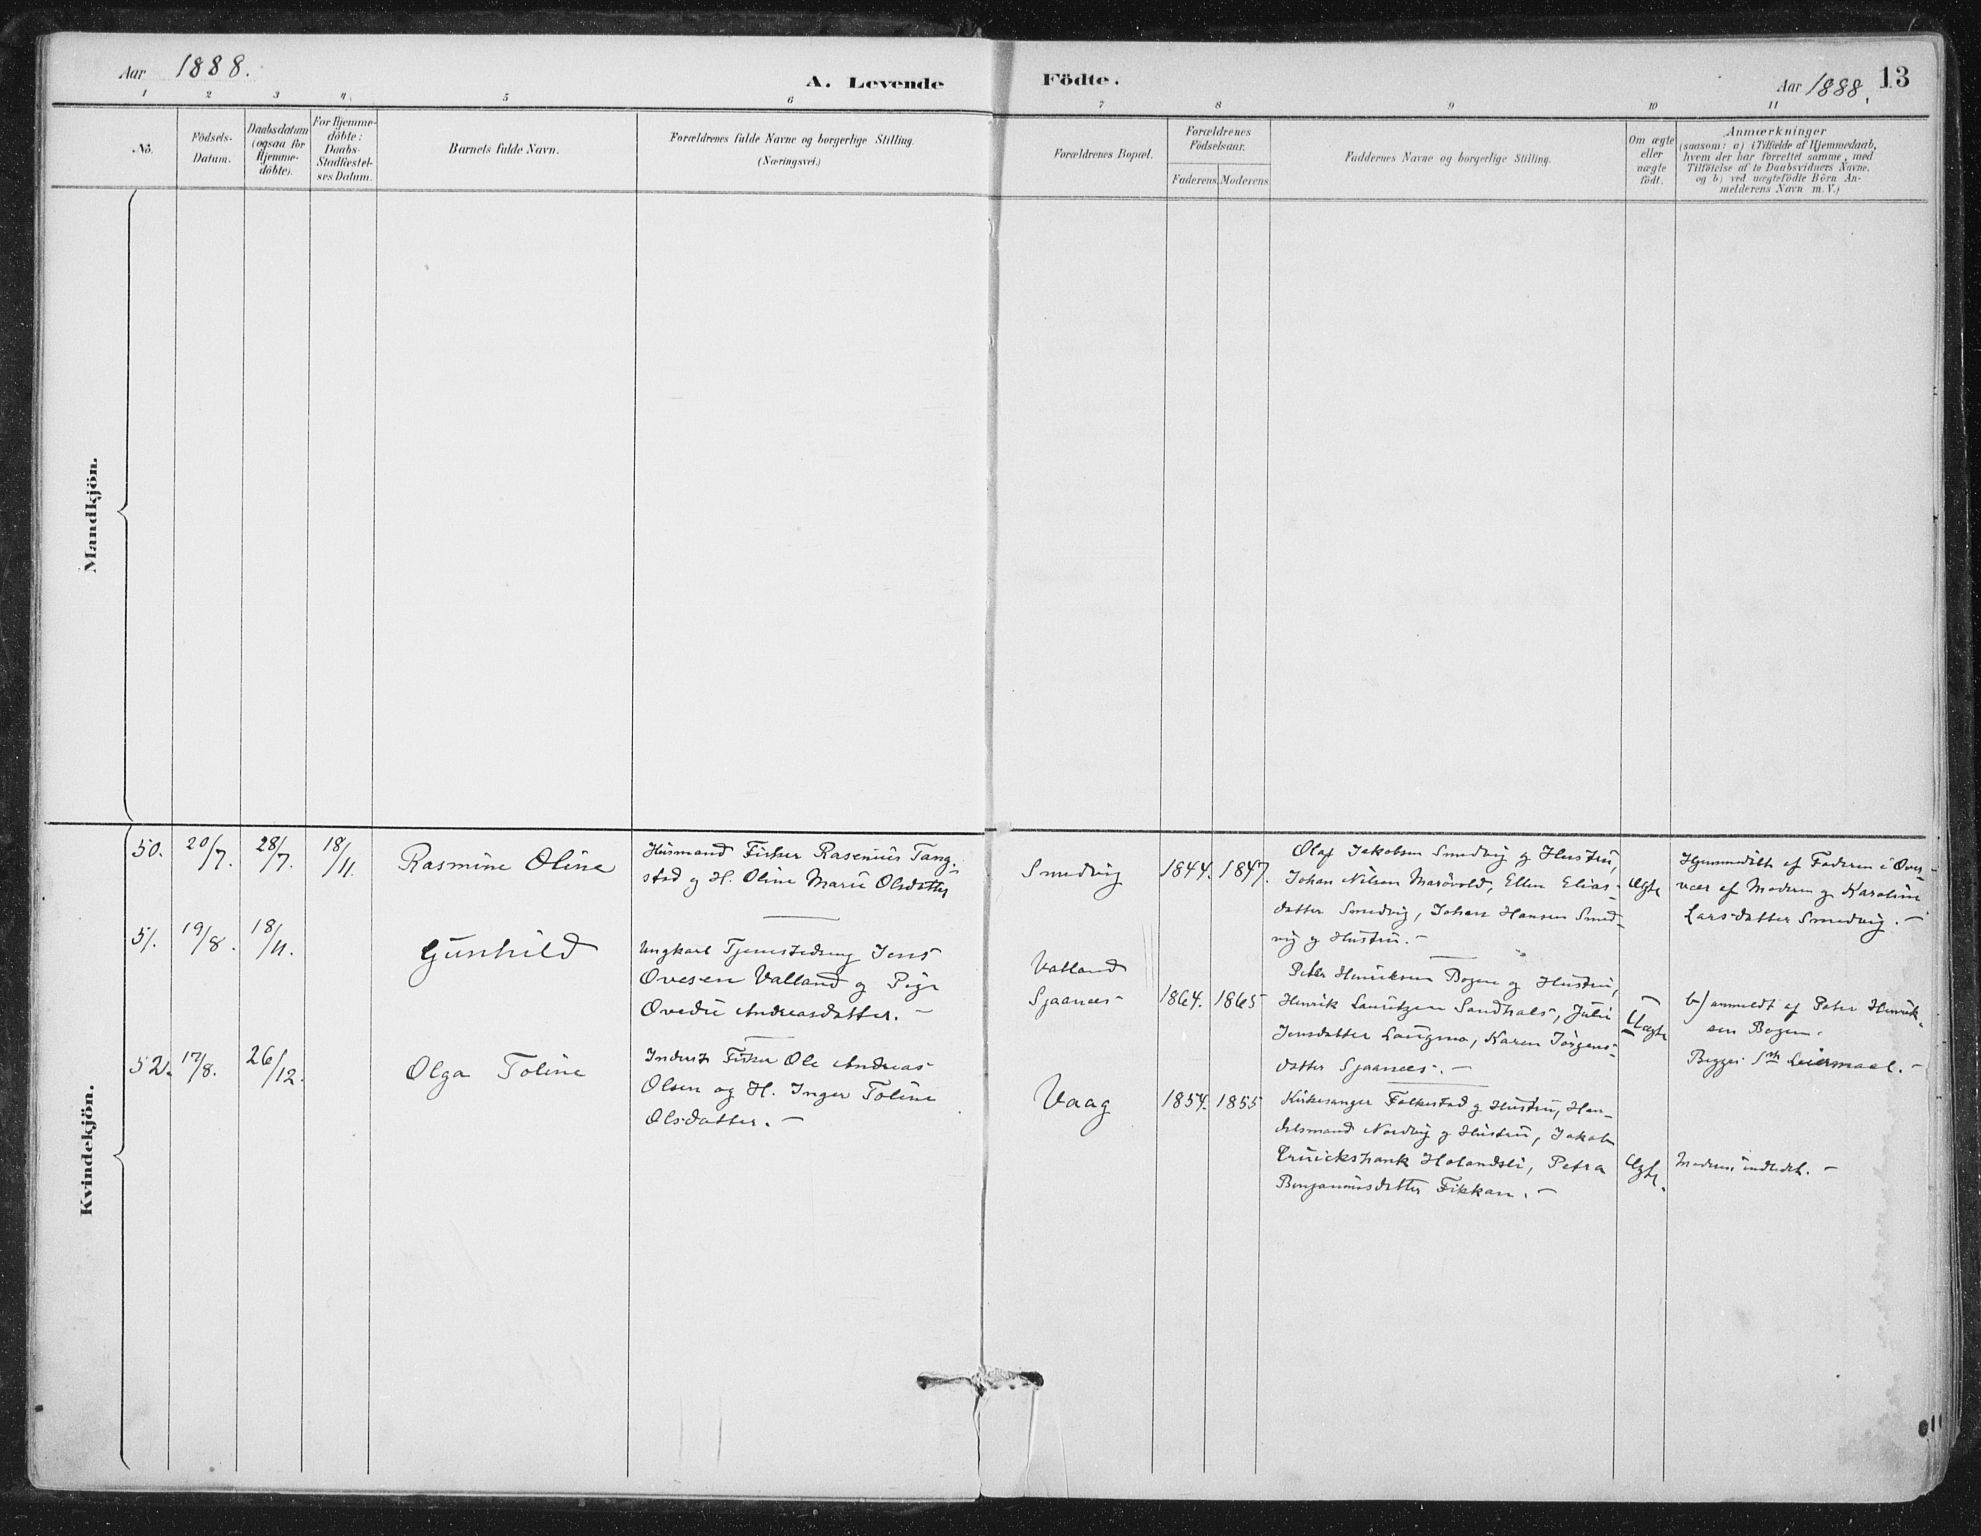 Aar 1888.
A. Levende Födte.
Aar 1888. 13
1 2 3 4. 5 6 7 8 9 10 11
No.
Födsels-
Datum.
Daabsdatum
(ogsaa for
Hjemme-
döbte).
For Hjemme-
döbte:
Daabs-
Stadfæstel-
ses Datum.
Barnets fulde Navn.
Forældrenes fulde Navne og borgerlige Stilling.
(Næringsvei.)
Forældrenes Bopæl.
Forældrenes
Födselsaar.
Faderens. Moderens
Faddernes Navne og borgerlige Stilling.
Om ægte
eller
uægte
födt.
Anmærkninger
(saasom: a) i Tilfælde af Hjemmedaab,
hvem der har forrettet samme, med
Tilföielse af to Daabsvidners Navne,
og b) ved uægtefödte Börn An-
melderens Navn m. V.)
Mandkjön.
Kvindekjön.
50. 20/7. 28/7. 18/11.
Rasmine Oline
Husmand Fisker Rasenius Tang-
stad og H. Oline Marie Olsdatter
Smedvig
1844. 1847.
Olaf Jakobsen Smedvig og Hustru,
Johan Nilsen Marövold, Ellen Elias-
datter Smedvig, Johan Hansen Smed-
vig og Hustru. –
Ægte
Hjemmedöbt af Faderen i Over-
vær af Moderen og Karoline
Larsdatter Smedvig. –
51. 19/8. 18/11.
Gunhild
Ungkarl Tjenestedreng Jens
Ovesen Valland og Pige
Ovedie Andreasdatter. –
Valland
Sjaanæs
1864. 1865
Peter Henriksen Bogen og Hustru,
Henrik Lauritzen Sandhals, Julie
Jensdatter Laugmo, Karen Jörgens-
datter Sjaanæs. –
Uægte
b) anmeldt af Peter Henrik-
sen Bogen.
Begges 1ste Leiermaal. –
52. 17/8. 26/12.
Olga Toline
Inderst Fisker Ole Andreas
Olsen og H. Inger Toline
Olsdatter. –
Vaag
1854. 1855
Kirkesanger Falkestad og Hustru, Han-
delsmand Nordvig og Hustru, Jakob
Cruickshank Holandsli, Petra
Benjaminsdatter Fikkan. –
Ægte.
Moderen indledet. –